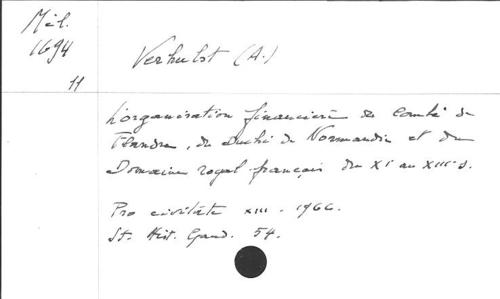 Mél.
1694
11
Verhulst (A.)
L'organisation financière du comté de
Flandre, du duché de Normandie et du
Domaine royal français du XIe au XIIIe s.
Pro civitate XIII. 1966.
St. Hist. Gand. 54.